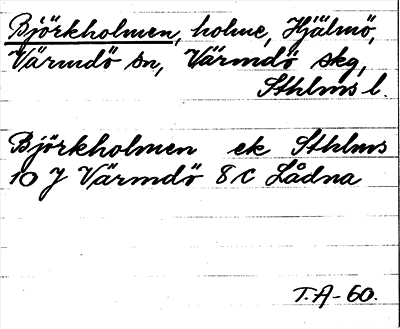 Björkholmen, holme, Hjälmö,
Värmdö sn, Värmdö skg,
Sthlms l.
Björkholmen ek Sthlms
10 J Värmdö 8 c Lådna
T.A-60.